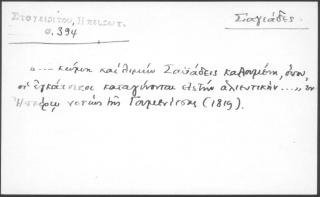 Σταγειρίτου, Ηπειρωτ. Σαγιάδες.
σ. 394
«... κώμη και λιμὴν Σαϊάδεις καλουμένη, ὅπου
οἱ ἐγκάτοικοι καταγίνονται εἰς τὴν ἁλιευτικήν ...», ἐν
Ἠπείρῳ νοτίως τῆς Γουμενίτσης (1819).